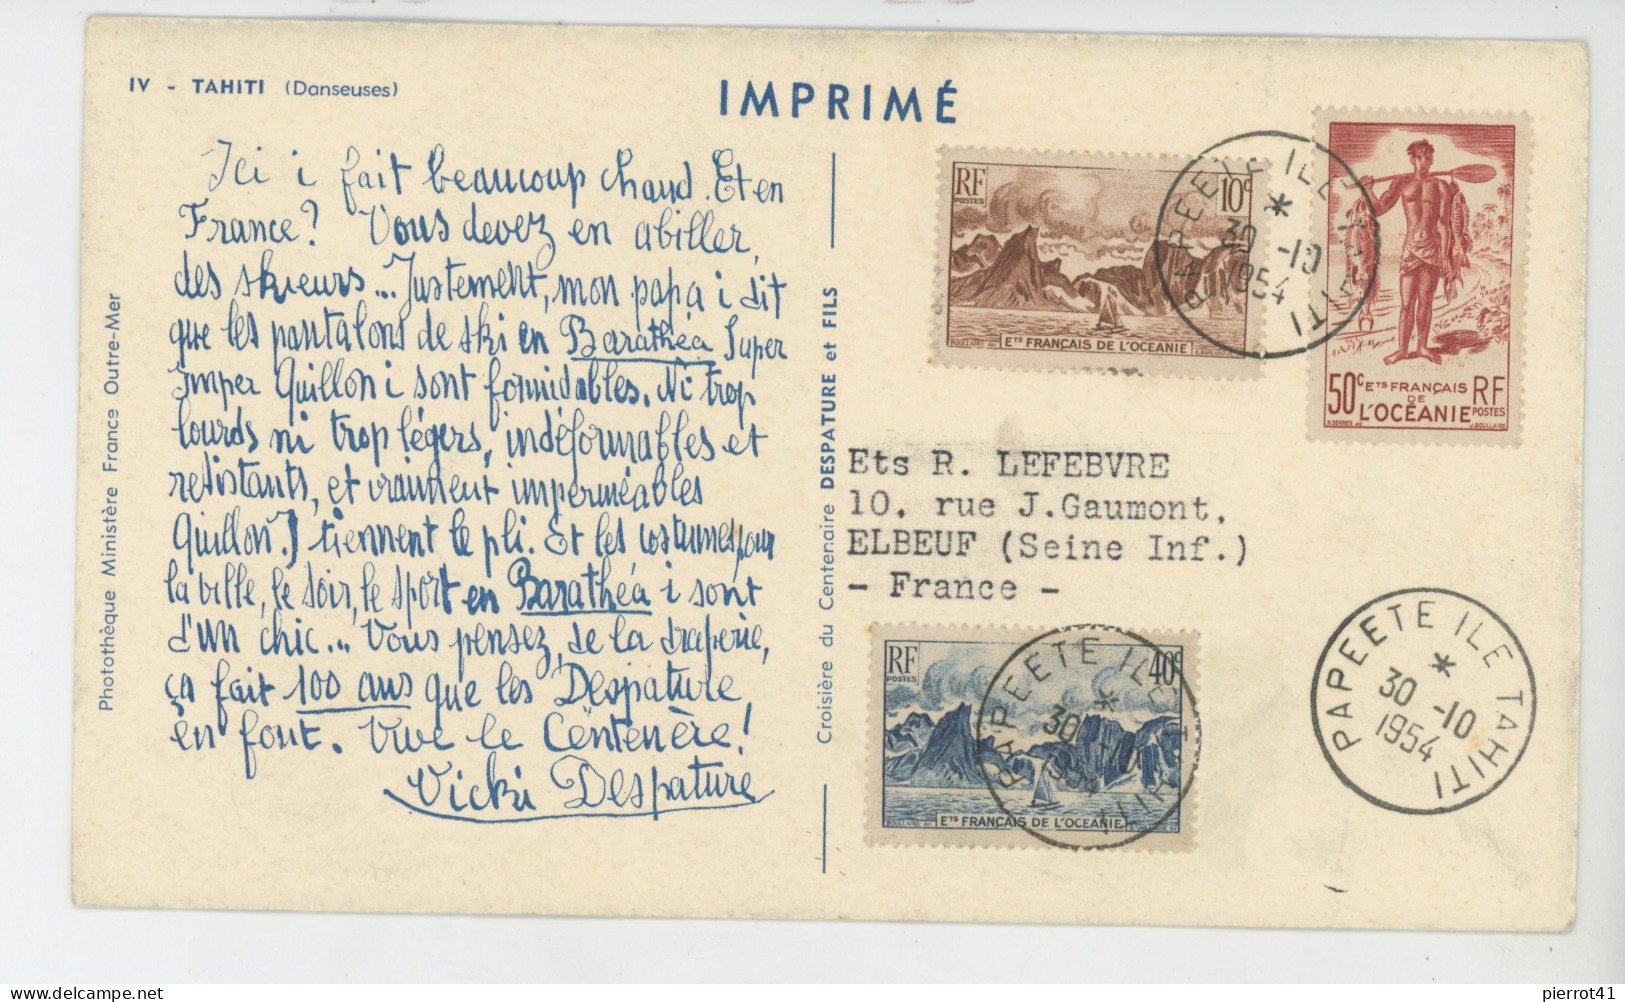 IV - TAHITI (Danseuses)
IMPRIMÉ
Ici i fait beaucoup chaud. Et en
France? Vous devez en abiller
des skieurs... Justement, mon papa i dit
que les pantalons de ski en Barathéa Super
Imper Quillon i sont formidables. Ni trop
lourds ni trop légers, indéformables et
résistants, et vraiment imperméables
Quillon. I tiennent le pli. Et les costumes pour
la ville, le soir, le sport en Barathéa i sont
d'un chic... Vous pensez, de la draperie,
ça fait 100 ans que les Despature
en font. Vive le Centenère!
Vicki Despature
Photothèque Ministère France Outre-Mer
Croisière du Centenaire DESPATURE et FILS
RF
POSTES
10c
ETS FRANÇAIS DE L'OCEANIE
PAPEETE ILE TAHITI
*
30 -10
1954
50c ETS FRANÇAIS
DE
L'OCÉANIE
RF
POSTES
Ets R. LEFEBVRE
10, rue J.Gaumont,
ELBEUF (Seine Inf.)
- France -
RF
POSTES
40c
ETS FRANÇAIS DE L'OCEANIE
PAPEETE ILE TAHITI
*
30 -10
1954
PAPEETE ILE TAHITI
*
30 -10
1954
delcampe.net
pierrot41